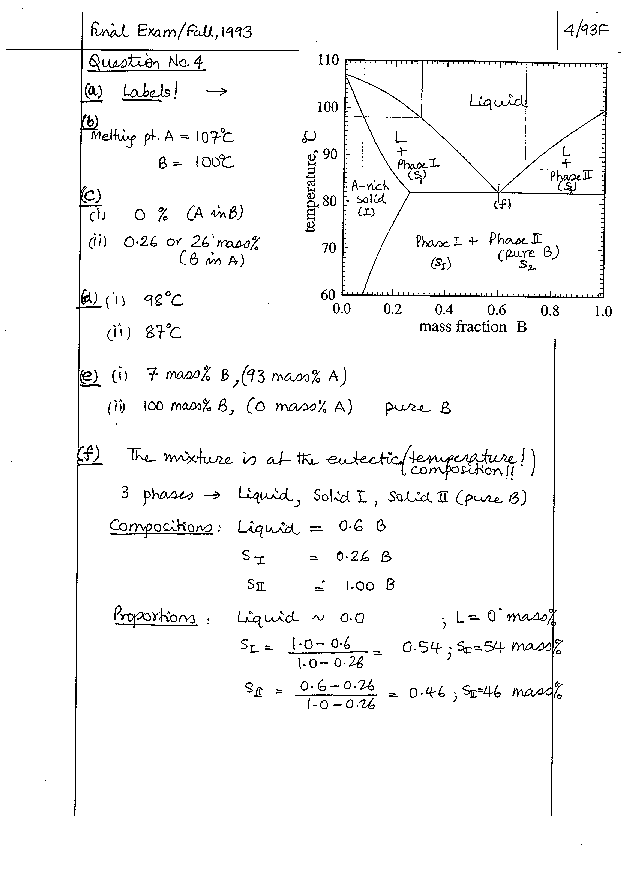 Final Exam/Fall, 1993
4/93F
Question No. 4
(a) Labels! →
(b)
Melting pt. A = 107°C
B = 100°C
(c)
(i) 0 % (A in B)
(ii) 0.26 or 26 mass%
(B in A)
(d) (i) 98°C
(ii) 87°C
110
100
90
80
70
60
temperature, °C
0.0 0.2 0.4 0.6 0.8 1.0
mass fraction B
Liquid
L
+
Phase I
(S1)
L
+
Phase II
(S2)
A-rich
solid
(I)
(f)
Phase I + Phase II
(SI) (pure B)
S2
(e) (i) 7 mass% B, (93 mass% A)
(ii) 100 mass% B, (0 mass% A) pure B
(f) The mixture is at the eutectic (temperature!)
composition!!
3 phases → Liquid, Solid I, Solid II (pure B)
Compocitions: Liquid = 0.6 B
SI = 0.26 B
SII = 1.00 B
Proportions: Liquid ~ 0.0 ; L = 0 mass%
SI = 1.0-0.6 / 1.0-0.26 = 0.54 ; SI=54 mass%
SII = 0.6-0.26 / 1.0-0.26 = 0.46 ; SII=46 mass%